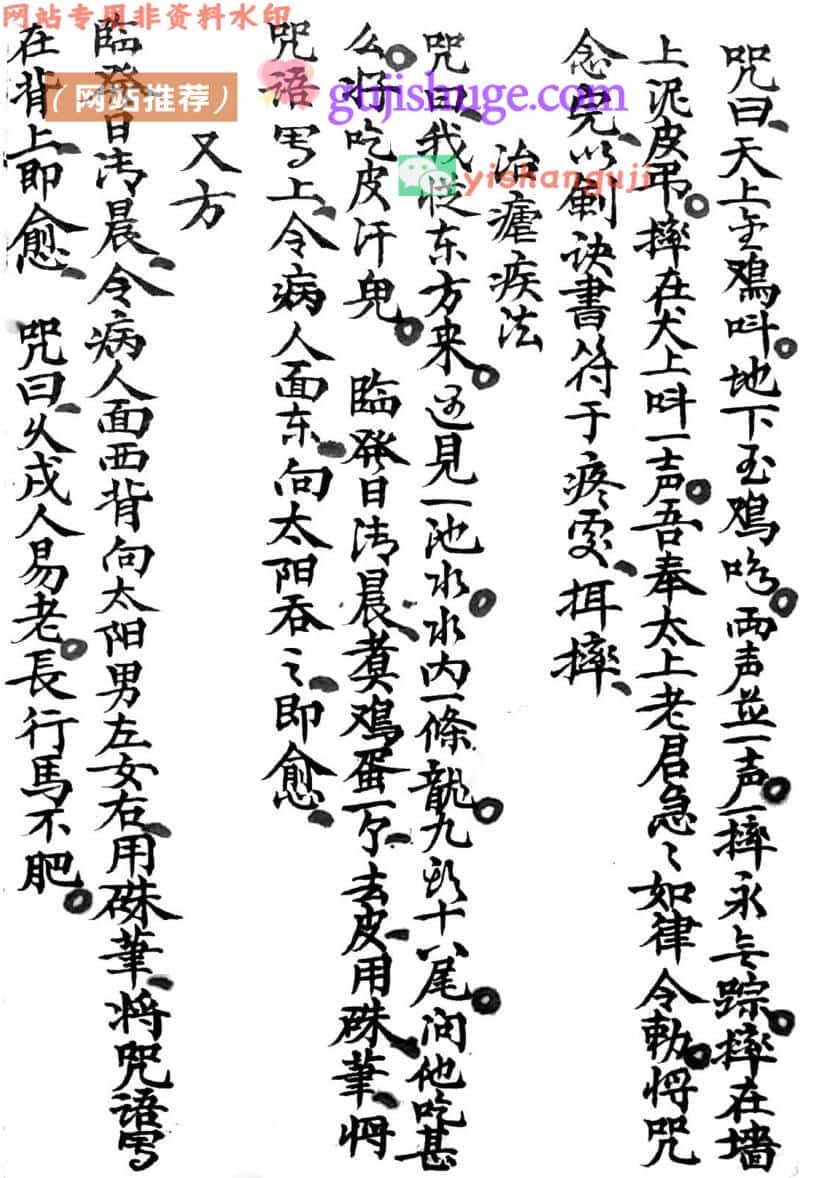 网站专用非资料水印
(网站推荐)
gujishuge.com
yishanguji
咒曰天上金鸡叫地下玉鸡鸣两声並一声摔永无踪摔在墙
上泥皮吊摔在犬上叫一声吾奉太上老君急〻如律令勅将咒
念完以劍诀書符于疼处挕摔
治瘧疾法
咒曰我從东方来还見一池水水内一條龍九头十八尾问他吃甚
么将吃皮汗鬼 臨發日清晨煑鸡蛋一个去皮用硃筆将
咒语写上令病人面东向太阳吞之即愈
又方
臨發日清晨令病人面西背向太阳男左女右用硃筆将咒语写
在背上即愈 咒曰久戍人易老長行馬不肥